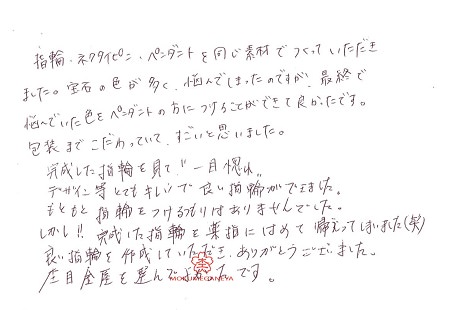 指輪・ネクタイピン・ペンダントを同じ素材でつくっていただき
ました。宝石の色が多く、悩んでしまったのですが、最終で
悩んでいた色をペンダントの方につけることができて良かったです。
包装までこだわっていて、すごいと思いました。
完成した指輪を見て"一目惚れ"
デザイン等とてもキレイで良い指輪ができました。
もともと指輪をつけるつもりはありませんでした。
しかし!! 完成した指輪を薬指にはめて帰ってしまいました(笑)
良い指輪を作成していただき、ありがとうございました。
杢目金屋を選んでよかったです。
MOKUMEGANEYA